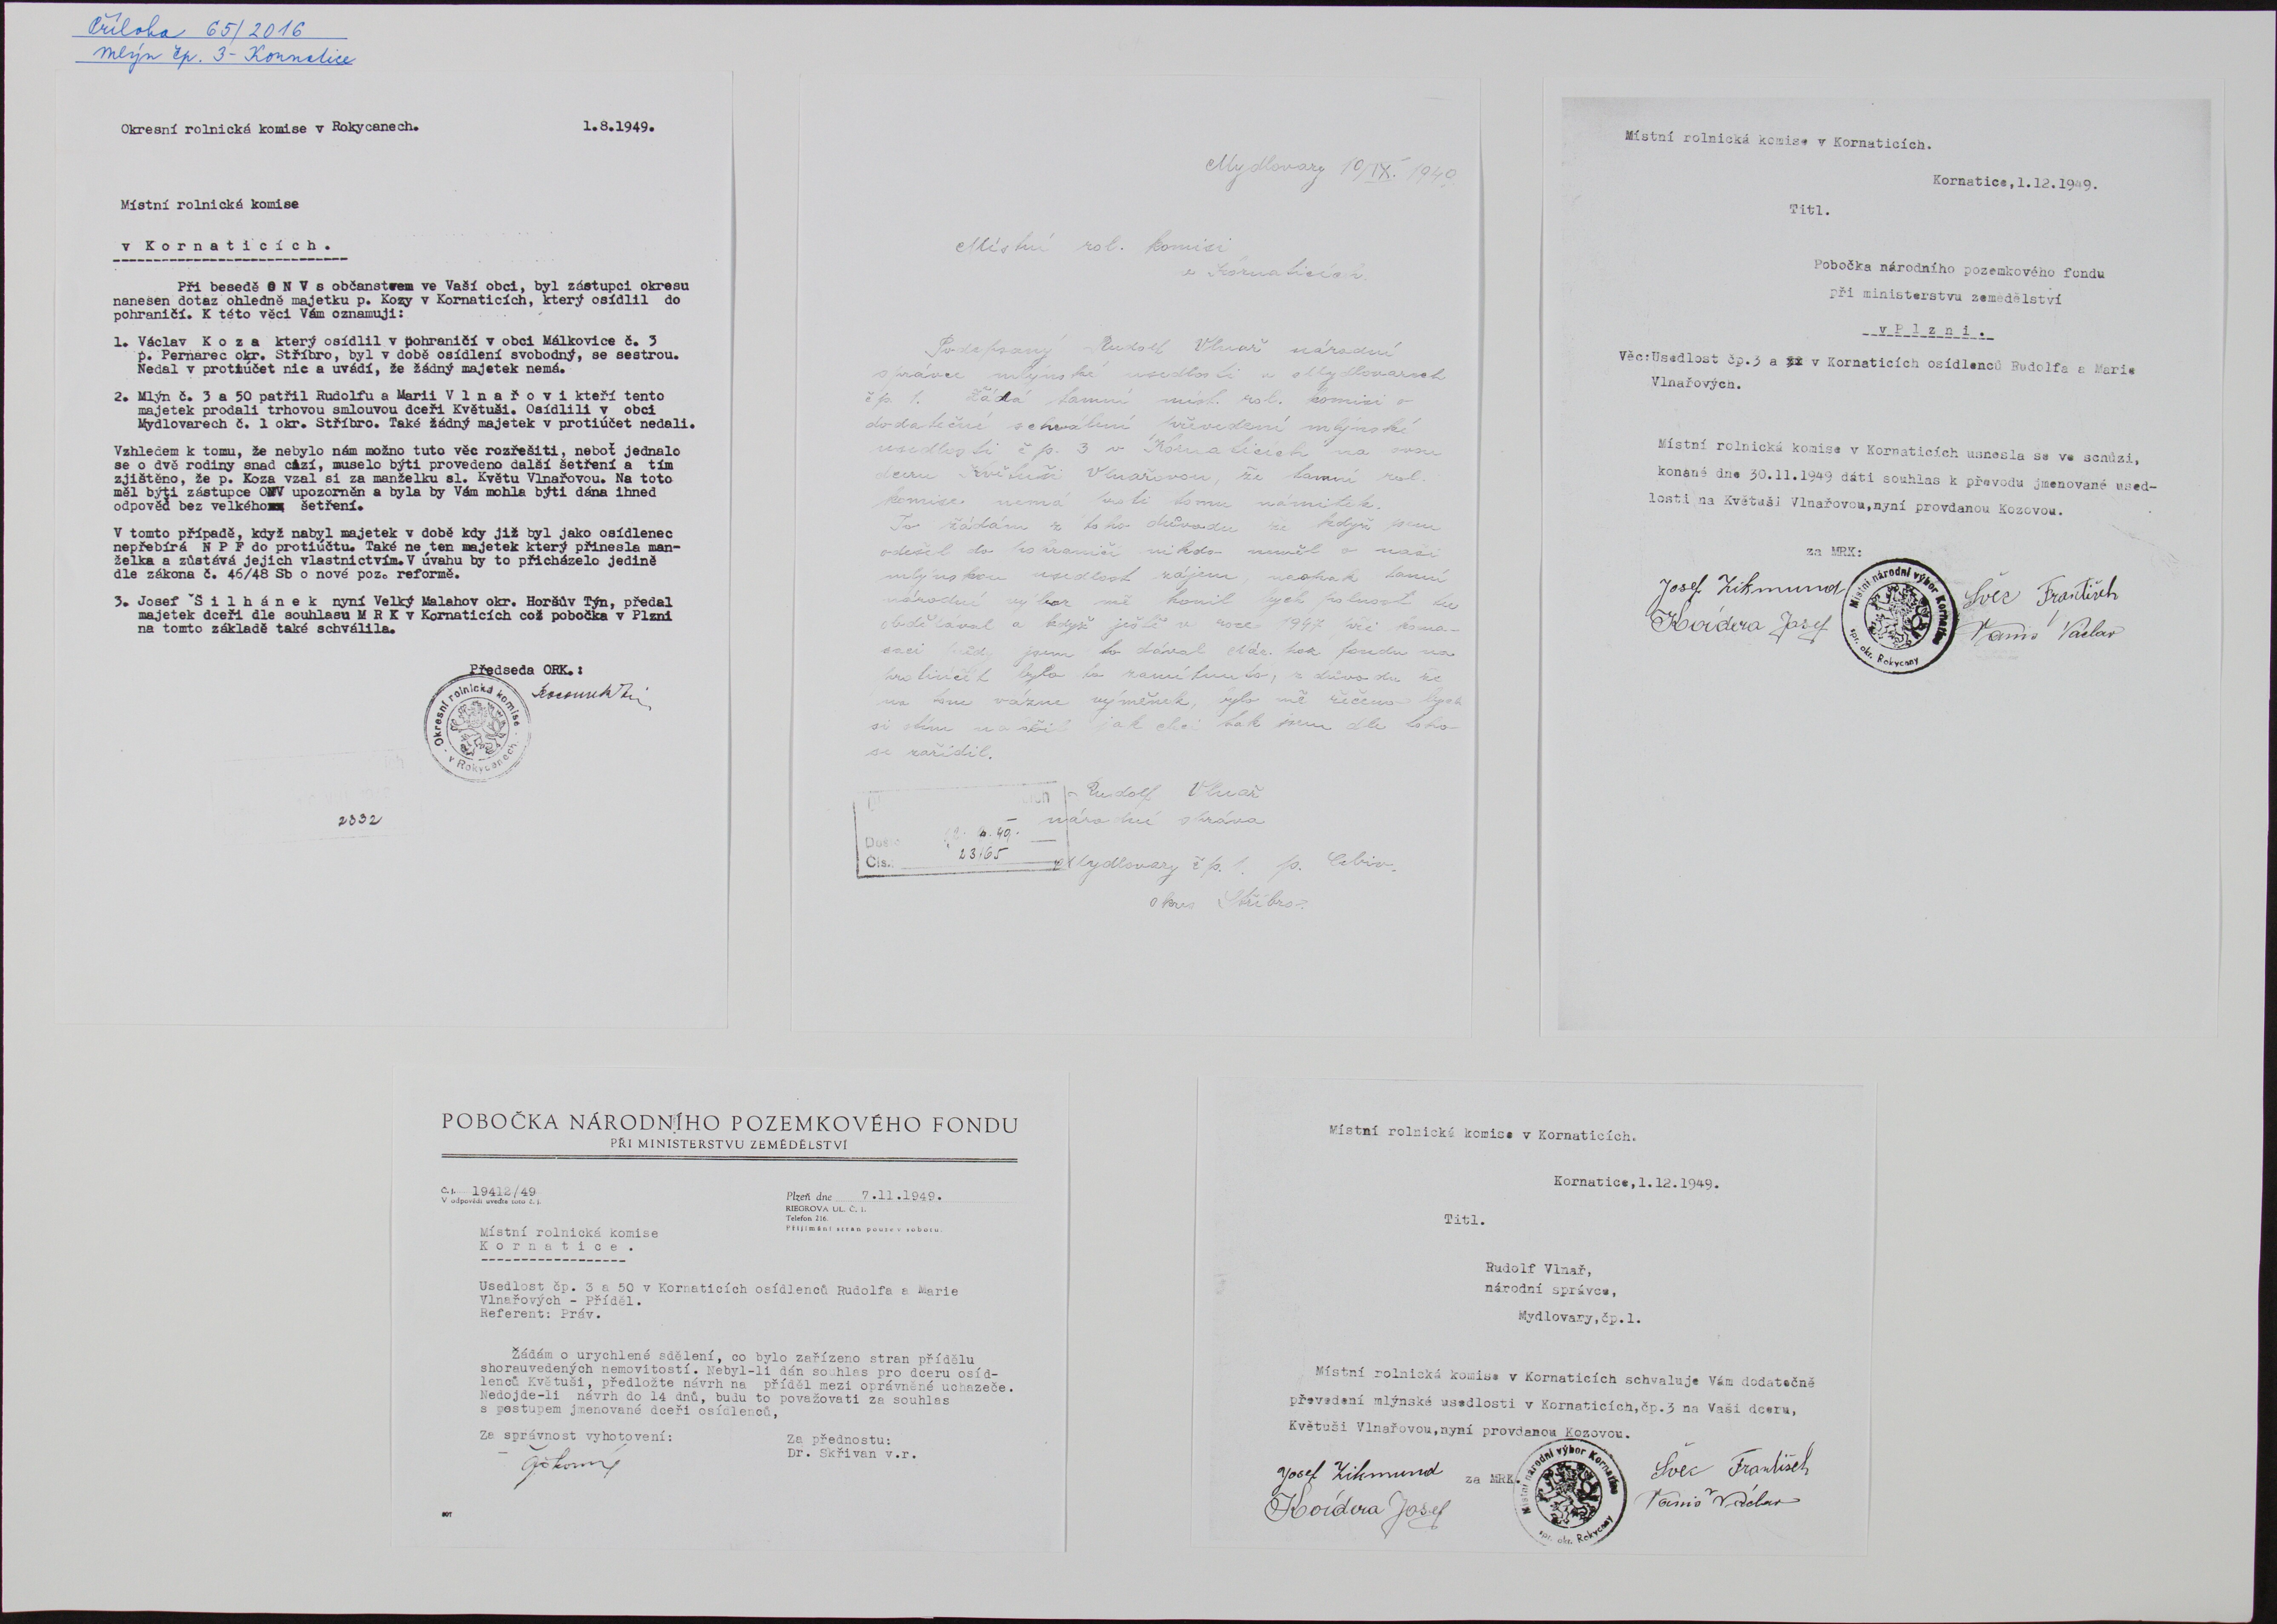 Příloha 65/2016
Mlýn čp. 3 - Kornatice
Okresní rolnická komise v Rokycanech. 1.8.1949.
Místní rolnická komise
v Kornaticích.
Při besedě O N V s občanstvem ve Vaší obci, byl zástupci okresu
nanesen dotaz ohledně majetku p. Kozy v Kornaticích, který osídlil do
pohraničí. K této věci Vám oznamuji:
1. Václav K o z a který osídlil v pohraničí v obci Málkovice č. 3
p. Pernarec okr. Stříbro, byl v době osídlení svobodný, se sestrou.
Nedal v protiúčet nic a uvádí, že žádný majetek nemá.
2. Mlýn č. 3 a 50 patřil Rudolfu a Marii V l n a ř o v i kteří tento
majetek prodali trhovou smlouvou dceři Květuši. Osídlili v obci
Mydlovarech č. 1 okr. Stříbro. Také žádný majetek v protiúčet nedali.
Vzhledem k tomu, že nebylo nám možno tuto věc rozřešiti, neboť jednalo
se o dvě rodiny snad cizí, muselo býti provedeno další šetření a tím
zjištěno, že p. Koza vzal si za manželku sl. Květu Vlnařovou. Na toto
měl býti zástupce ONV upozorněn a byla by Vám mohla býti dána ihned
odpověď bez velkého šetření.
V tomto případě, když nabyl majetek v době kdy již byl jako osídlenec
nepřebírá N P F do protiúčtu. Také ne ten majetek který přinesla man-
želka a zůstává jejich vlastnictvím. V úvahu by to přicházelo jedině
dle zákona č. 46/48 Sb o nové poz. reformě.
3. Josef Š i l h á n e k nyní Velký Malahov okr. Horšův Týn, předal
majetek dceři dle souhlasu M R K v Kornaticích což pobočka v Plzni
na tomto základě také schválila.
Předseda ORK.:
Okresní rolnická komise
v Rokycanech
2332
Mydlovary 10/IX. 1949
Místní rol. komisi
v Kornaticích.
Podepsaný Rudolf Vlnař národní
správce mlýnské usedlosti v Mydlovarech
čp. 1. Žádá tamní míst. rol. komisi o
dodatečné schválení převedení mlýnské
usedlosti čp. 3 v Kornaticích na svou
dceru Květuši Vlnařovou, že tamní rol.
komise nemá proti tomu námitek.
To žádám z toho důvodu že když jsem
odešel do pohraničí nikdo neměl o naši
mlýnskou usedlost zájem, naopak tamní
národní výbor mě honil bych polnost
obdělával a když ještě v roce 1947
jsem to dával Nár. poz. fondu na
protiúčet bylo to zamítnuto, z důvodu že
na tom vázne výměnek, bylo mě řečeno bych
si s tím naložil jak chci tak jsem dle toho
se zařídil.
Rudolf Vlnař
národní správa
Mydlovary čp. 1. p. Cebiv.
okres Stříbro.
Došlo
Čís. 23165
Místní rolnická komise v Kornaticích.
Kornatice,1.12.1949.
Titl.
Pobočka národního pozemkového fondu
při ministerstvu zemědělství
v P l z n i .
Věc:Usedlost čp.3 a v Kornaticích osídlenců Rudolfa a Marie
Vlnařových.
Místní rolnická komise v Kornaticích usnesla se ve schůzi,
konané dne 30.11.1949 dáti souhlas k převodu jmenované used-
losti na Květuši Vlnařovou,nyní provdanou Kozovou.
za MRK:
Josef Zikmund Švec František
Josef Václav
Místní národní výbor Kornatice
spr. okr. Rokycany
POBOČKA NÁRODNÍHO POZEMKOVÉHO FONDU
PŘI MINISTERSTVU ZEMĚDĚLSTVÍ
Č. j. 19412/49
V odpovědi uveďte toto č. j.
Plzeň dne 7.11.1949.
RIEGROVA UL. Č. 1.
Telefon 216.
Přijímání stran pouze v sobotu.
Místní rolnická komise
K o r n a t i c e .
Usedlost čp. 3 a 50 v Kornaticích osídlenců Rudolfa a Marie
Vlnařových - Příděl.
Referent: Práv.
Žádám o urychlené sdělení, co bylo zařízeno stran přídělu
shorauvedených nemovitostí. Nebyl-li dán souhlas pro dceru osíd-
lenců Květuši, předložte návrh na příděl mezi oprávněné uchazeče.
Nedojde-li návrh do 14 dnů, budu to považovati za souhlas
s postupem jmenované dceři osídlenců,
Za správnost vyhotovení: Za přednostu:
Dr. Skřivan v.r.
Místní rolnická komise v Kornaticích.
Kornatice,1.12.1949.
Titl.
Rudolf Vlnař,
národní správce,
Mydlovary,čp.1.
Místní rolnická komise v Kornaticích schvaluje Vám dodatečně
převedení mlýnské usedlosti v Kornaticích,čp.3 na Vaši dceru,
Květuši Vlnařovou,nyní provdanou Kozovou.
Josef Zikmund za MRK. Švec František
Josef Václav
Místní národní výbor Kornatice
spr. okr. Rokycany